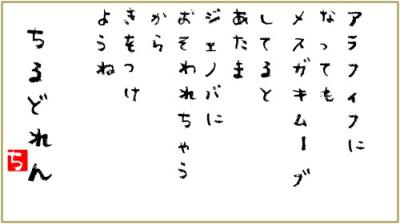 アラフィフに
なっても
メスガキムーブ
してると
あたま
ジェノバに
おそわれちゃう
から
きをつけ
ようね
ちるどれん
ち